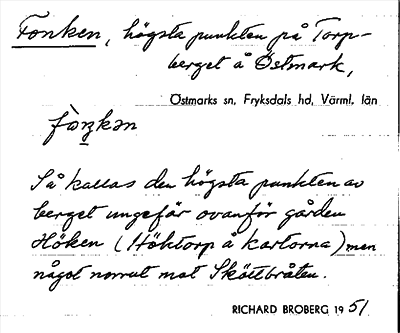 Fonken, högsta punkten på Torp-
berget å Östmark,
Östmarks sn, Fryksdals hd, Värml. län
fòŋkən
Så kallas den högsta punkten av
berget ungefär ovanför gården
Höken (Höktorp å kartorna) men
något norrut mot Sköttbråten.
RICHARD BROBERG 1951